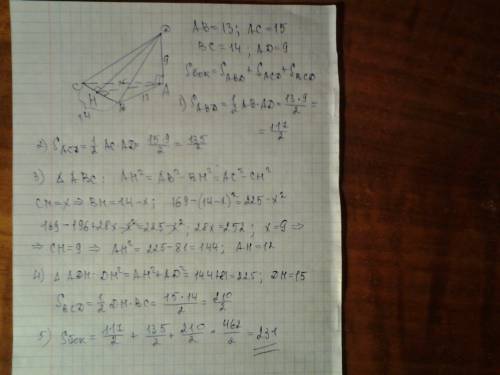 D
9
C
A
H
13
14
B
AB = 13; AC = 15
BC = 14; AD = 9
Sбок = S_ABD + S_ACD + S_BCD
1) S_ABD = 1/2 AB·AD = 13·9/2 =
= 117/2
2) S_ACD = 1/2 AC·AD = 15·9/2 = 135/2
3) △ ABC: AH² = AB² - BH² = AC² - CH²
CH = x ⇒ BH = 14 - x; 169 - (14 - x)² = 225 - x²
169 - 196 + 28x - x² = 225 - x²; 28x = 252; x = 9 ⇒
⇒ CH = 9 ⇒ AH² = 225 - 81 = 144; AH = 12
4) △ ADH: DH² = AH² + AD² = 144 + 81 = 225; DH = 15
S_BCD = 1/2 DH·BC = 15·14/2 = 210/2
5) Sбок = 117/2 + 135/2 + 210/2 = 462/2 = 231